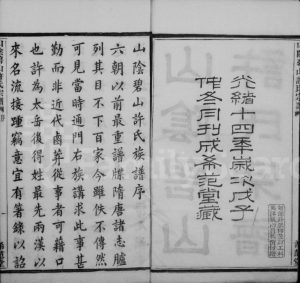 光緒十四年歲次戊子
仲冬月刊成希范堂藏
山陰碧山許氏族譜序
六朝以前最重譜牒隋唐諸志臚
列其目不下百家今雖佚不傳然
可見當時通門右族講求此事甚
勤而非近代鹵莽從事者可藉口
也許為太岳後得姓最先兩漢以
來名流接踵竊意宜有著錄以詒